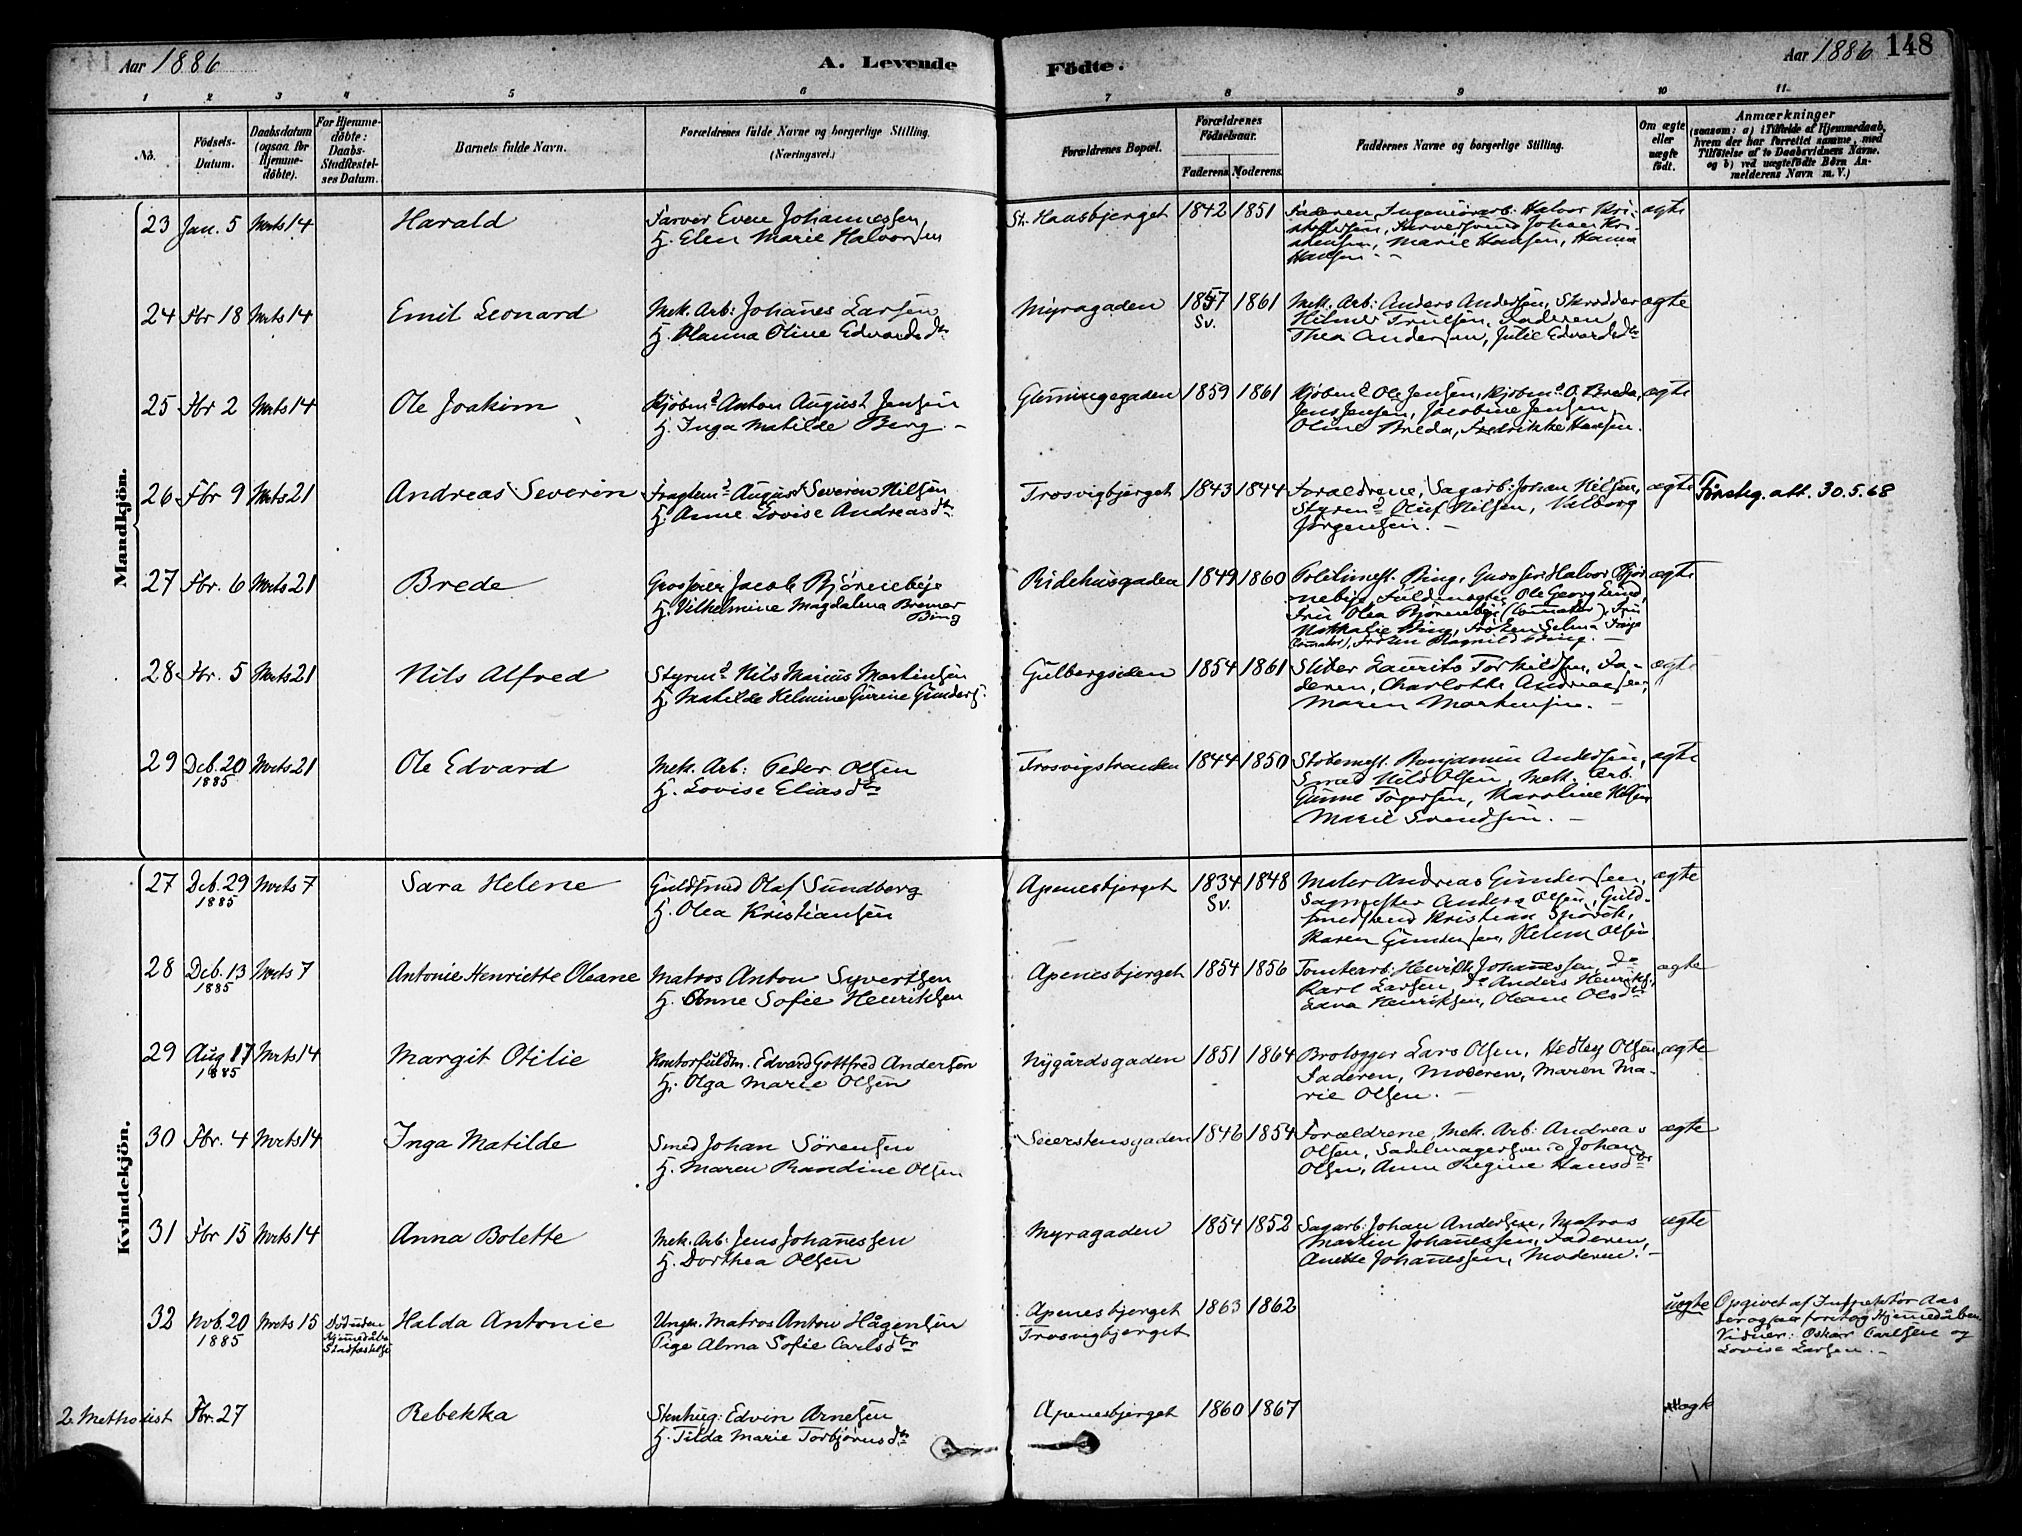 Aar 1886
A. Levende
Födte.
Aar 1886
148
1 2 3 4 5 6 7 8 9 10 11.
No.
Födsels-
Datum.
Daabsdatum
(ogsaa for
Hjemme-
döbte).
For Hjemme-
döbte:
Daabs-
Stadfæstel-
ses Datum.
Barnets fulde Navn.
Forældrenes fulde Navne og borgerlige Stilling.
(Næringsvei.)
Forældrenes Bopæl.
Forældrenes
Födselsaar.
Faderens. Moderens.
Faddernes Navne og borgerlige Stilling.
Om ægte
eller
uægte
födt.
Anmærkninger
(saasom: a) i Tilfælde af Hjemmedaab,
hvem der har forrettet samme, med
Tilföielse af to Daabsvidners Navne.
og b) ved uægtefödte Börn An-
melderens Navn m. V.)
Mandkjön.
23 Jan. 5 Mrts 14 Harald
Farver Even Johannessen,
H. Elen Marie Halvorsen
St. Haasbjerget 1842 1851
Faderen, Ingeniörarb: Halvor Kri-
stoffersen, Farversvend Johan Kri-
stensen, Marie Hansen, Hanna
Hansen.
ægte
24 Fbr 18 Mrts 14 Emil Leonard
Mek. Arb: Johanes Larsen
H. Olanna Oline Edvardsdtr
Myragaden 1857 1861
Sv.
Mek. Arb: Anders Andersen, Skrædder
Hilmer Trulsen, Faderen
Thea Andersen, Julie Edvardsdtr
ægte
25 Fbr 2 Mrts 14 Ole Joakim
Kjöbmd Anton August Jensen
H. Inga Matilde Berg.
Glemmingegaden 1859 1861
Kjöbmd Ole Jensen, Kjöbmd O. Breda,
Jens Jensen, Jacobine Jensen,
Oline Breda, Fredrikke Hansen.
ægte
26 Fbr 9 Mrts 21 Andreas Severin
Fragtemd August Severin Nilsen
H. Anne Lovise Andreasdtr
Trosvigbjerget 1843 1844
Forældrene, Sagarb: Johan Nilsen,
Styrmd Oluf Nilsen, Valborg
Jörgensen.
ægte
att. 30.5.68
27 Fbr. 6 Mrts 21 Brede
Grosserer Jacob Björnebye
H. Vilhelmine Magdalena Bremer
Bing
Ridehusgaden 1849 1860
Politimest. Bing, Grosser Halvor Björ
nebye, Fuldmægtig Ole Georg Lund,
Fru Olea Björnebye, Fru
Nathalie Bing, Fröken Selma
Fröken Ragnild Bing.
ægte
28 Fbr. 5 Mrts 21 Nils Alfred
Styrmd Nils Marius Martinsen
H. Matilde Helmine Gurine Gunders.
Gulbergsiden 1854 1861
Sliber Laurits Torkildsen, Fa-
deren, Charlotte Andreassen,
Maren Martinsen.
ægte
29 Deb. 20 Mrts 21 Ole Edvard
1885
Mek. Arb: Peder Olsen
H. Lovise Eliasdtr
Trosvigstranden 1844 1850
Stöbemest. Benjamin Andersen,
Smed Nils Olsen, Mek. Arb.
Gunne Tögersen, Karoline Nilsen
Marie Svendsen.
ægte
Kvindekjön.
27 Deb. 29 Mrts 7 Sara Helene
1885
Guldsmed Olaf Sundberg
H. Olea Kristiansen
Apenesbjerget 1834 1848
Sv.
Maler Andreas Gundersen,
Sagmester Anders Olsen, Guld-
smedsvend Kristian
Karen Gundersen, Helene Olsen
ægte
28 Deb. 13 Mrts 7 Antonie Henriette Oleane
1885
Matros Anton Syvertsen
H. Anne Sofie Henriksen
Apenesbjerget 1854 1856
Tomtearb: Henrik Johanessen, Do
Karl Larsen, Do Anders Henriks.
Edva Henriksen, Oleane Olsdtr
ægte
29 Aug 17 Mrts 14 Margit Otilie
1885
Kontorfuldm. Edvard Gottfred Andersen
H. Olga Marie Olsen
Nygårdsgaden 1851 1864
Brolægger Lars Olsen, Hedley Olsen,
Faderen, Moderen, Maren Ma-
rie Olsen.
ægte
30 Fbr. 4 Mrts 14 Inga Matilde
Smed Johan Sörensen
H. Maren Randine Olsen
Seierstensgaden 1846 1854
Forældrene, Mek. Arb: Andreas
Olsen, Sadelmagersvend Johan
Olsen, Anne Regine Hansdtr
ægte
31 Fbr 15 Mrts 14 Anna Bolette
Mek. Arb: Jens Johanessen
H. Dorthea Olsen
Myragaden 1854 1852
Sagarb: Johan Andersen, Matros
Martin Johanessen, Faderen,
Anette Johanessen, Moderen.
ægte
32 Nvb. 20 Mrts 15 Död uden Halda Antonie
1885
Hjemmedåbs
Stadfæstelse
Ungk. Matros Anton Hågensen
Pige Alma Sofie Carlsdtr
Apenesbjerget 1863 1862
Trosvigbjerget
uægte
Opgivet af Inspektör Aas
der ogsaa foretog Hjemmedåben
Vidner: Oskar Carlsen og
Lovise Larsen.
2. Methodist Fbr. 27 Rebekka
Stenhug: Edvin Arnesen
H. Tilda Marie Torbjörnsdtr
Apenesbjerget 1860 1867
ægte